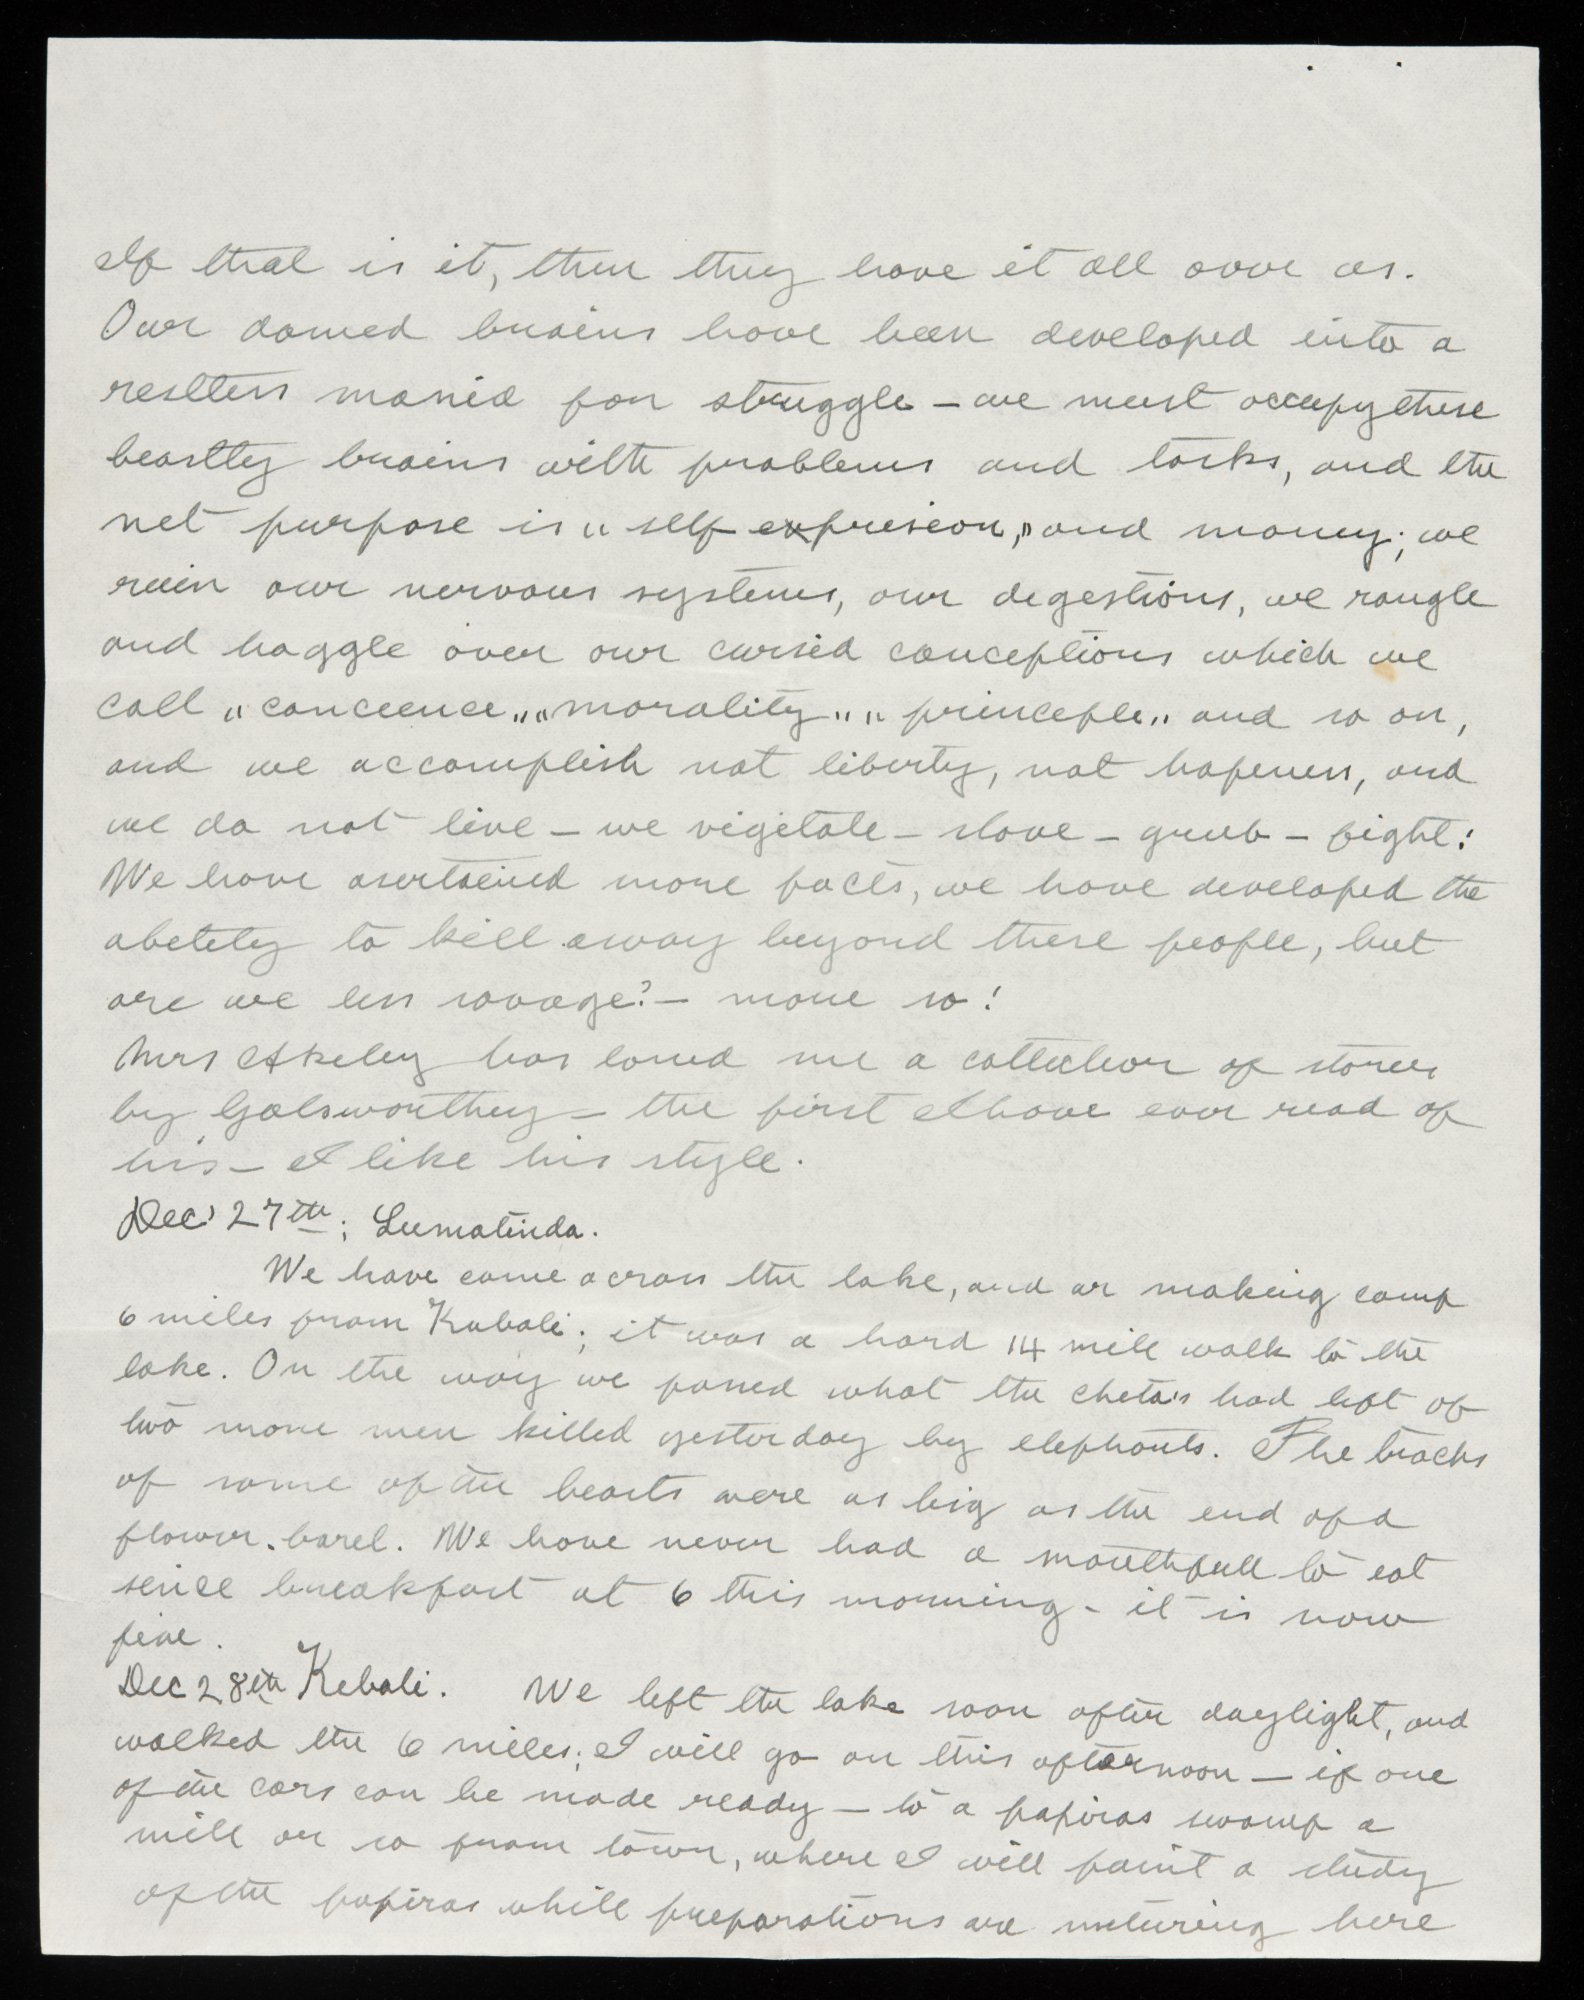 If that is it, then they have it all over us.
Our domed brains have been developed into a
restless mania for struggle – we must occupy these
beastly brains with problems and tasks, and the
net purpose is "self expresion," and money; we
ruin our nervous systems, our degestions, we rangle
and haggle over our cursed conceptions which we
call "concience" "morality" "princeple" and so on,
and we accomplish not liberty, not hapeness, and
we do not live – we vigitate – slave – grub – fight!
We have asertained more facts, we have developed the
abelety to kill away beyond these people, but
are we less savage? – more so!
Mrs Akeley has loned me a collection of stories
by Galsworthy – the first I have ever read of
his – I like his style.
Dec' 27th; Lumatinda.
We have come across the lake, and ar making camp
6 miles from Kabali; it was a hard 14 mile walk to the
lake. On the way we passed what the cheta's had left of
two more men killed yesterday by elephants. The tracks
of some of the beasts were as big as the end of a
flower-barel. We have never had a mouthfull to eat
sence breakfast at 6 this morning – it is now
five.
Dec 28th Kebali. We left the lake soon after daylight, and
walked the 6 miles; I will go on this afternoon – if one
of the cars can be made ready – to a papiras swamp a
mile or so from town, where I will paint a study
of the papiras while preparations are maturing here